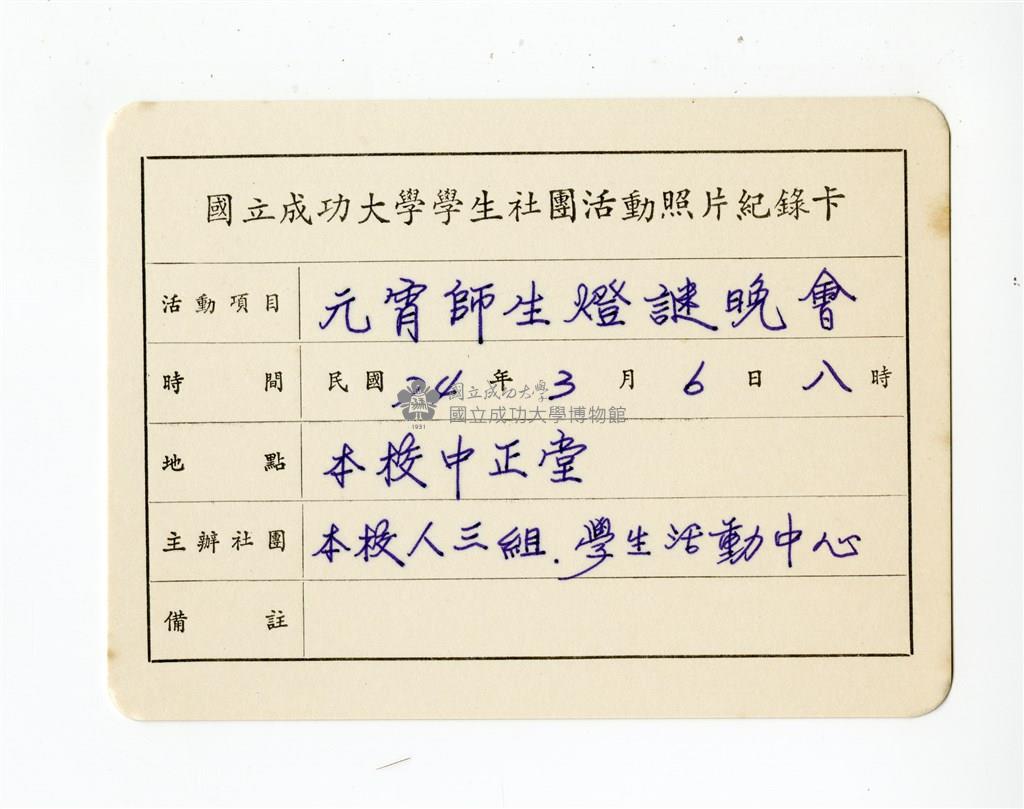 國立成功大學學生社團活動照片紀錄卡
活動項目 元宵師生燈謎晚會
時間 民國 74 年 3 月 6 日 八 時
國立成功大學
國立成功大學博物館
1931
地點 本校中正堂
主辦社團 本校人三組.學生活動中心
備註